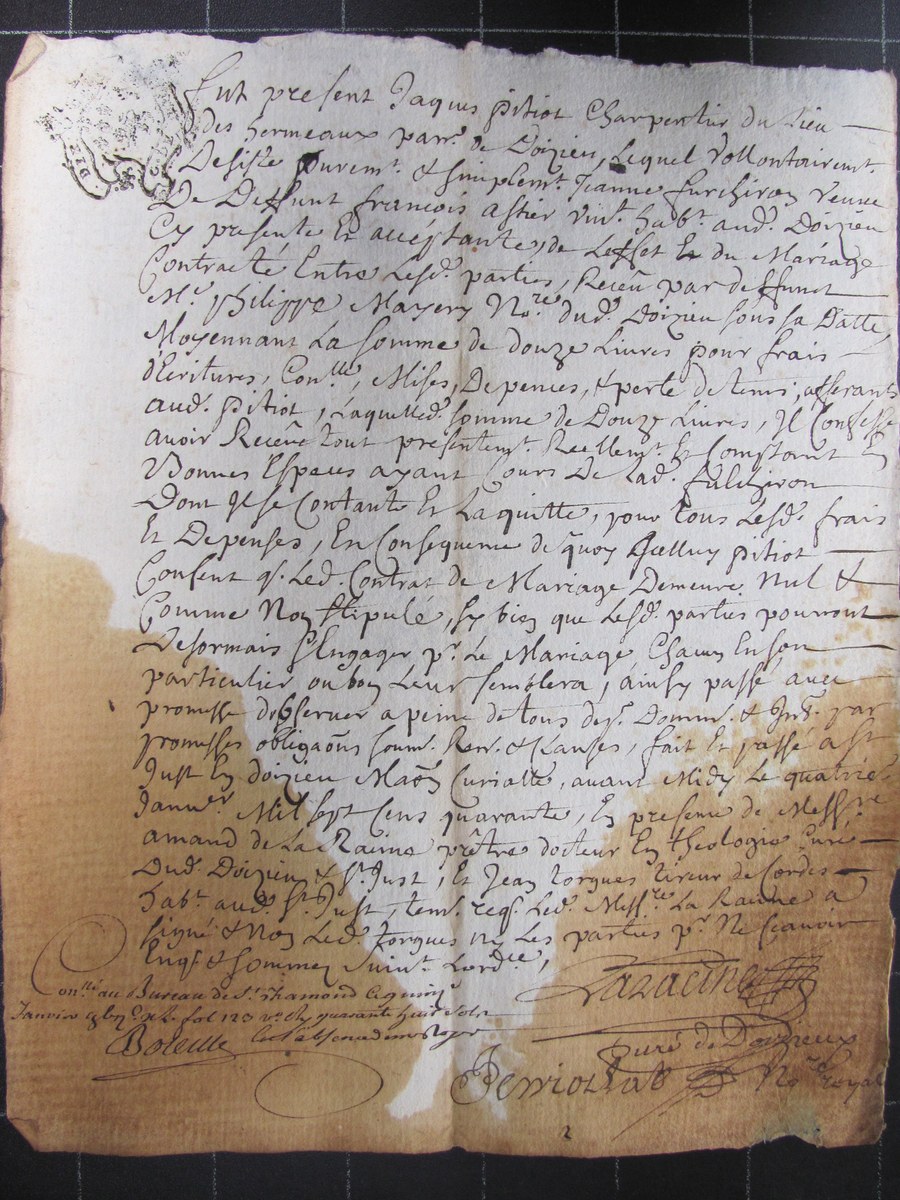 Fut present Jaques pitiot Charpentier du Lieu
des hermeaux parr. de Doizieu, Lequel Vollontairemt.
Desiste puremt. & simplemt. Jeanne furchiron veuve
De Deffunt françois astier vivt. habt. aud. Doizieu
Cy presente Et accéptante, de Leffet du Mariage
Contracté Entre Lesd. parties, Receu par deffunct
Me. philippe Mayery Nore. dud. Doizieu sous sa Datte,
Moyennant La somme de douze Livres pour frais
d'Ecritures, Conlle, Mises, Depences, & perte de tems, afferants
aud. pitiot, Laquelled. somme de Douze Livres, Il Confesse
avoir Receüe tout presentemt. Reellemt. Et Comptant En
Bonnes Especes ayant Cours De Lad. fulchiron
Dont Il se Contante Et La quitte, pour tous Lesd. frais
Et Depenses, En Consequence de quoy Icelluy pitiot
Consent q. Led. Contrat de Mariage Demeure Nul &
Comme Non stipulé, sy bien que Lesd. parties pourront
Desormais s'Engager pr. Le Mariage Chacun En son
particulier ou bon Leur semblera, ainsy passé avec
promesse d'observer a peine de tous desp. Domm. & Ints. par
promesses obligaons soum. Ren. & Clauses, fait Et passé a st
Just En doizieu Maon Curialle, avant Midy Le quatrie.
Janvier Mil sept Cens quarante, En presense de Messire
amand de La Racine prêtre docteur En theologie Curé
Dud. Doizieu & st. Just, Et Jean torgues tireur de Cordes
habt. aud. st. Just, tem. req. Led. Messire. La Racine a
signé & Non Led. torgues ny Les parties pr. Ne scavoir
Enq. & sommez suivt. Lordce,
Laracine
Curé de Doizieux
onllé au Bureau de st. Chamond Ce quinze
Janvier fol 123 quarante huit sols
Perriolat Nore royal
2